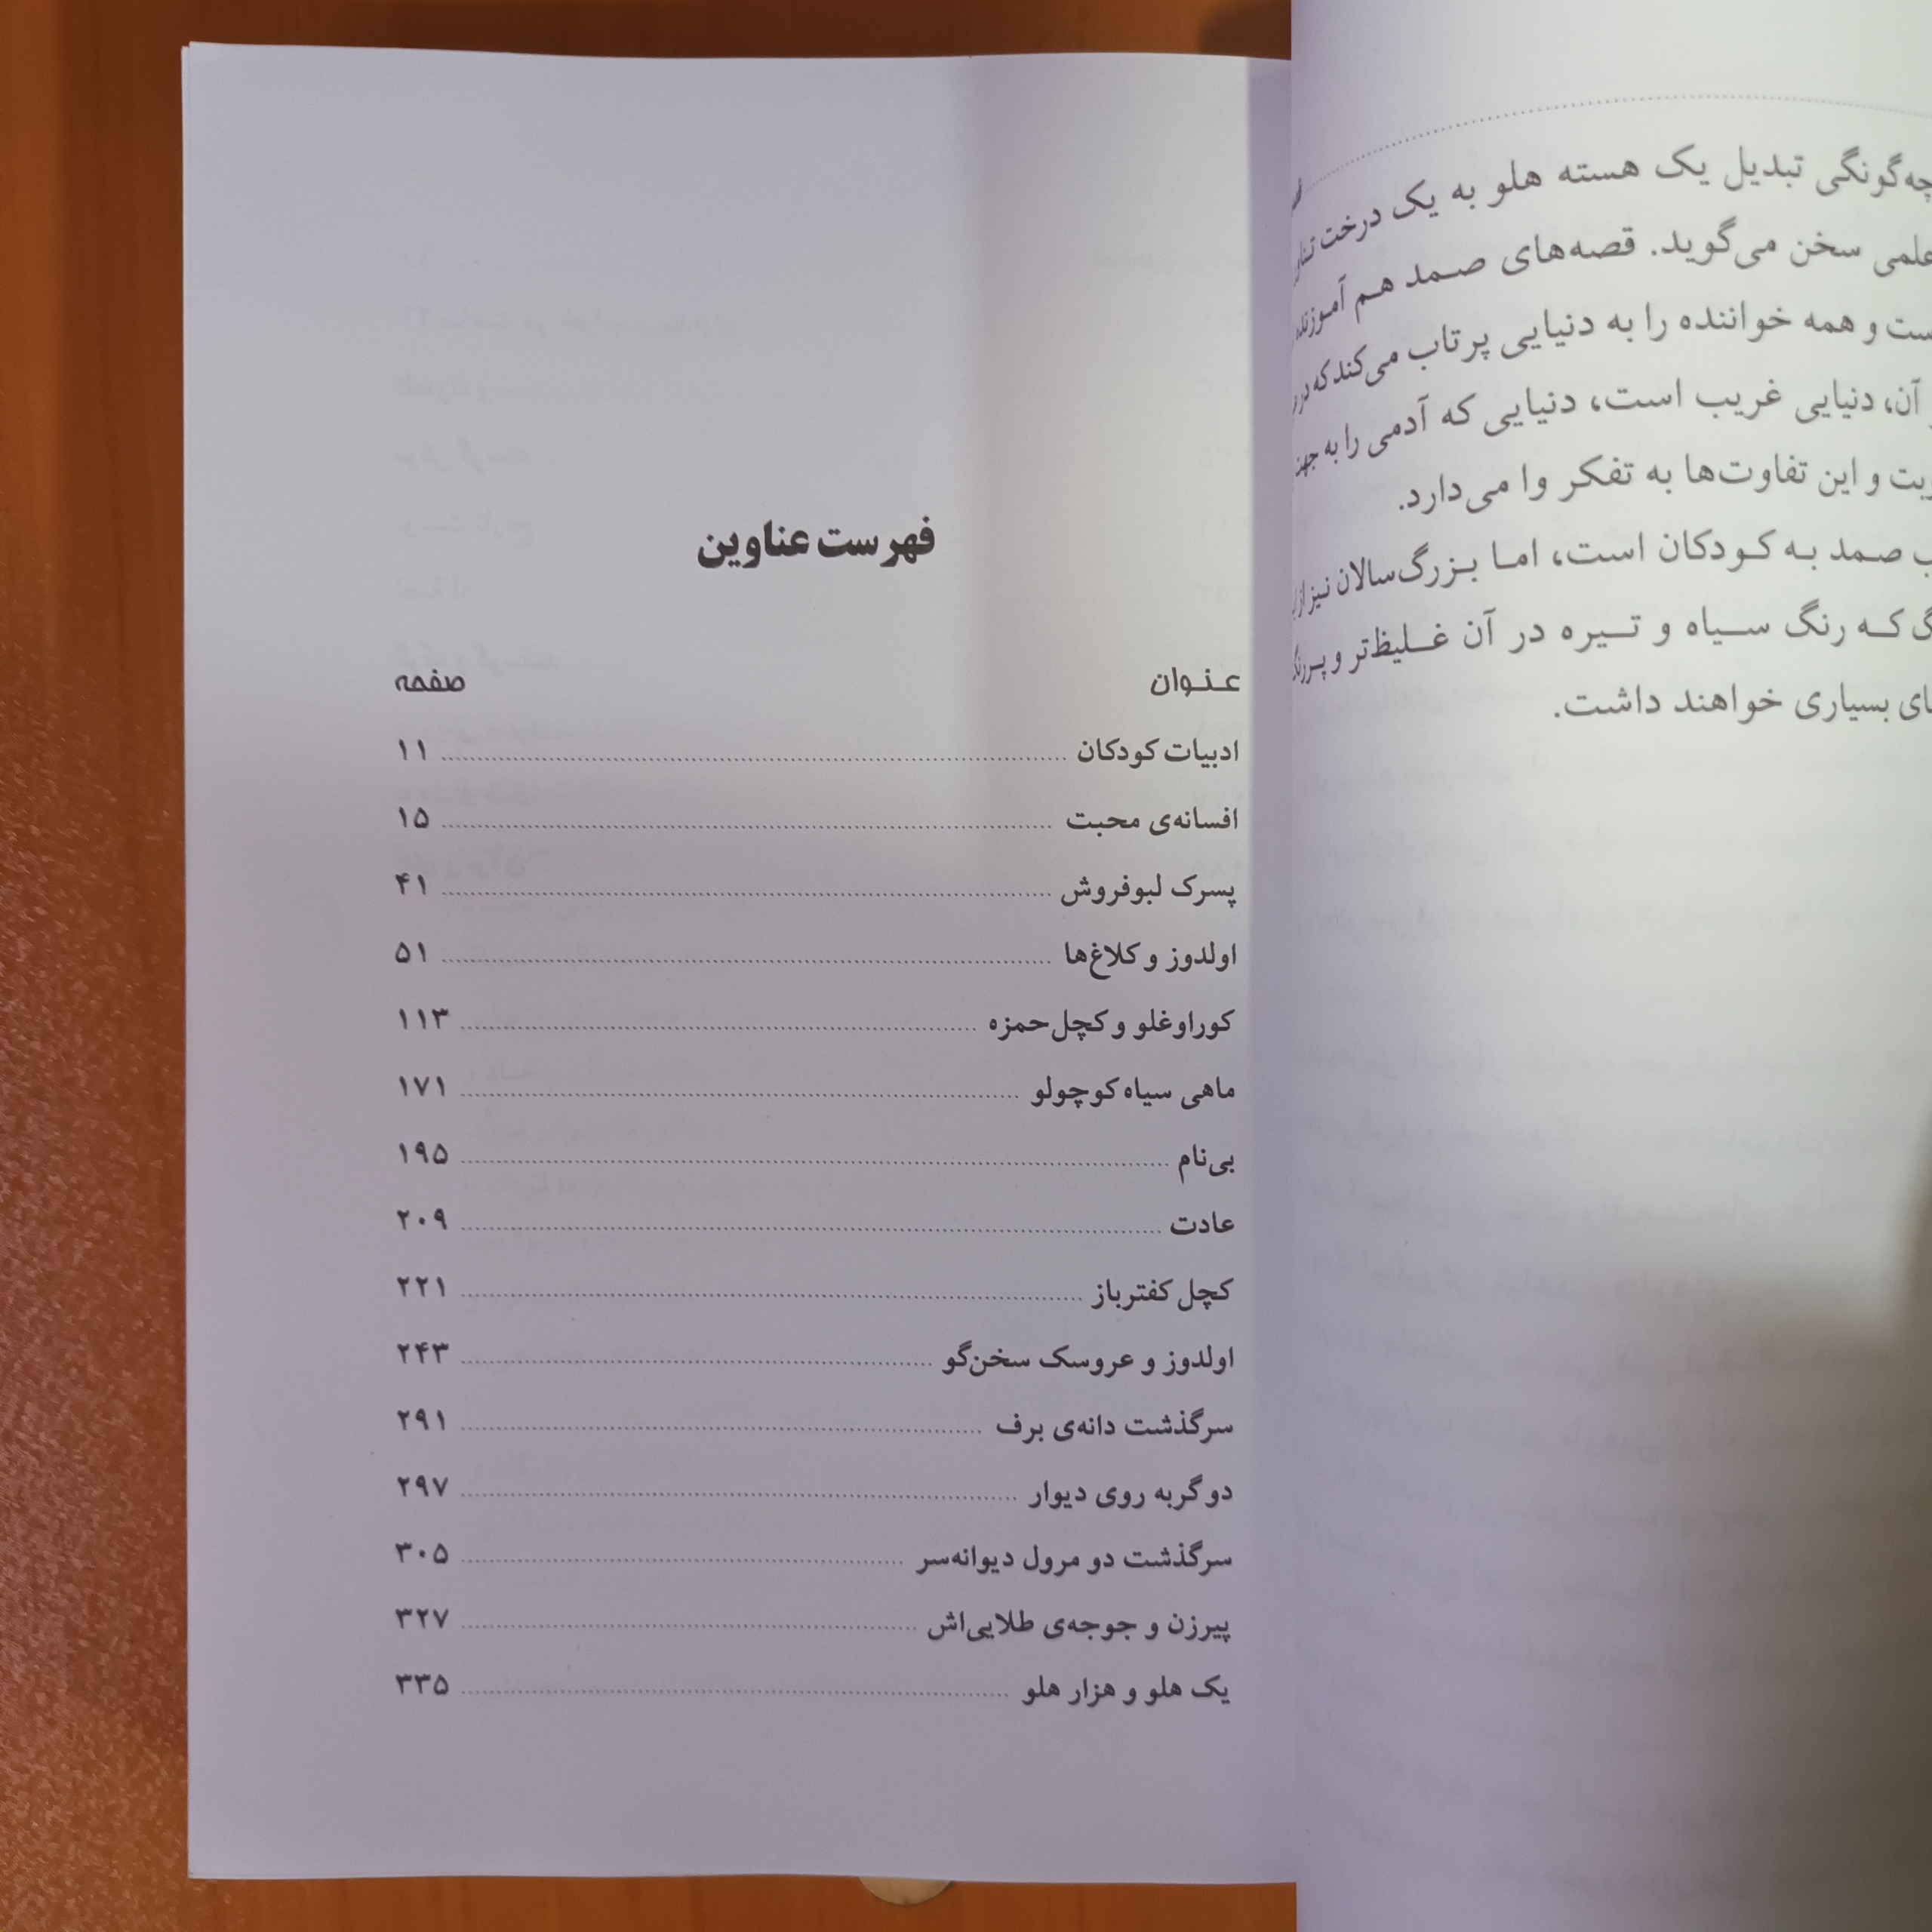 چه‌گونگی تبدیل یک هسته هلو به یک درخت
علمی سخن می‌گوید. قصه‌های صمد هم آموزنده
و همه خواننده را به دنیایی پرتاب می‌کند که در
آن، دنیایی غریب است، دنیایی که آدمی را به
و این تفاوت‌ها به تفکر وا می‌دارد.
صمد به کودکان است، اما بزرگ‌سالان نیز از
که رنگ سیاه و تیره در آن غلیظ‌تر و پررنگ
بسیاری خواهند داشت.
فهرست عناوین
عنوان صفحه
ادبیات کودکان ۱۱
افسانه‌ی محبت ۱۵
پسرک لبوفروش ۴۱
اولدوز و کلاغ‌ها ۵۱
کوراوغلو و کچل‌حمزه ۱۱۳
ماهی سیاه کوچولو ۱۷۱
بی‌نام ۱۹۵
عادت ۲۰۹
کچل کفترباز ۲۲۱
اولدوز و عروسک سخن‌گو ۲۴۳
سرگذشت دانه‌ی برف ۲۹۱
دو گربه روی دیوار ۲۹۷
سرگذشت دو مرول دیوانه‌سر ۳۰۵
پیرزن و جوجه‌ی طلایی‌اش ۳۲۷
یک هلو و هزار هلو ۳۳۵